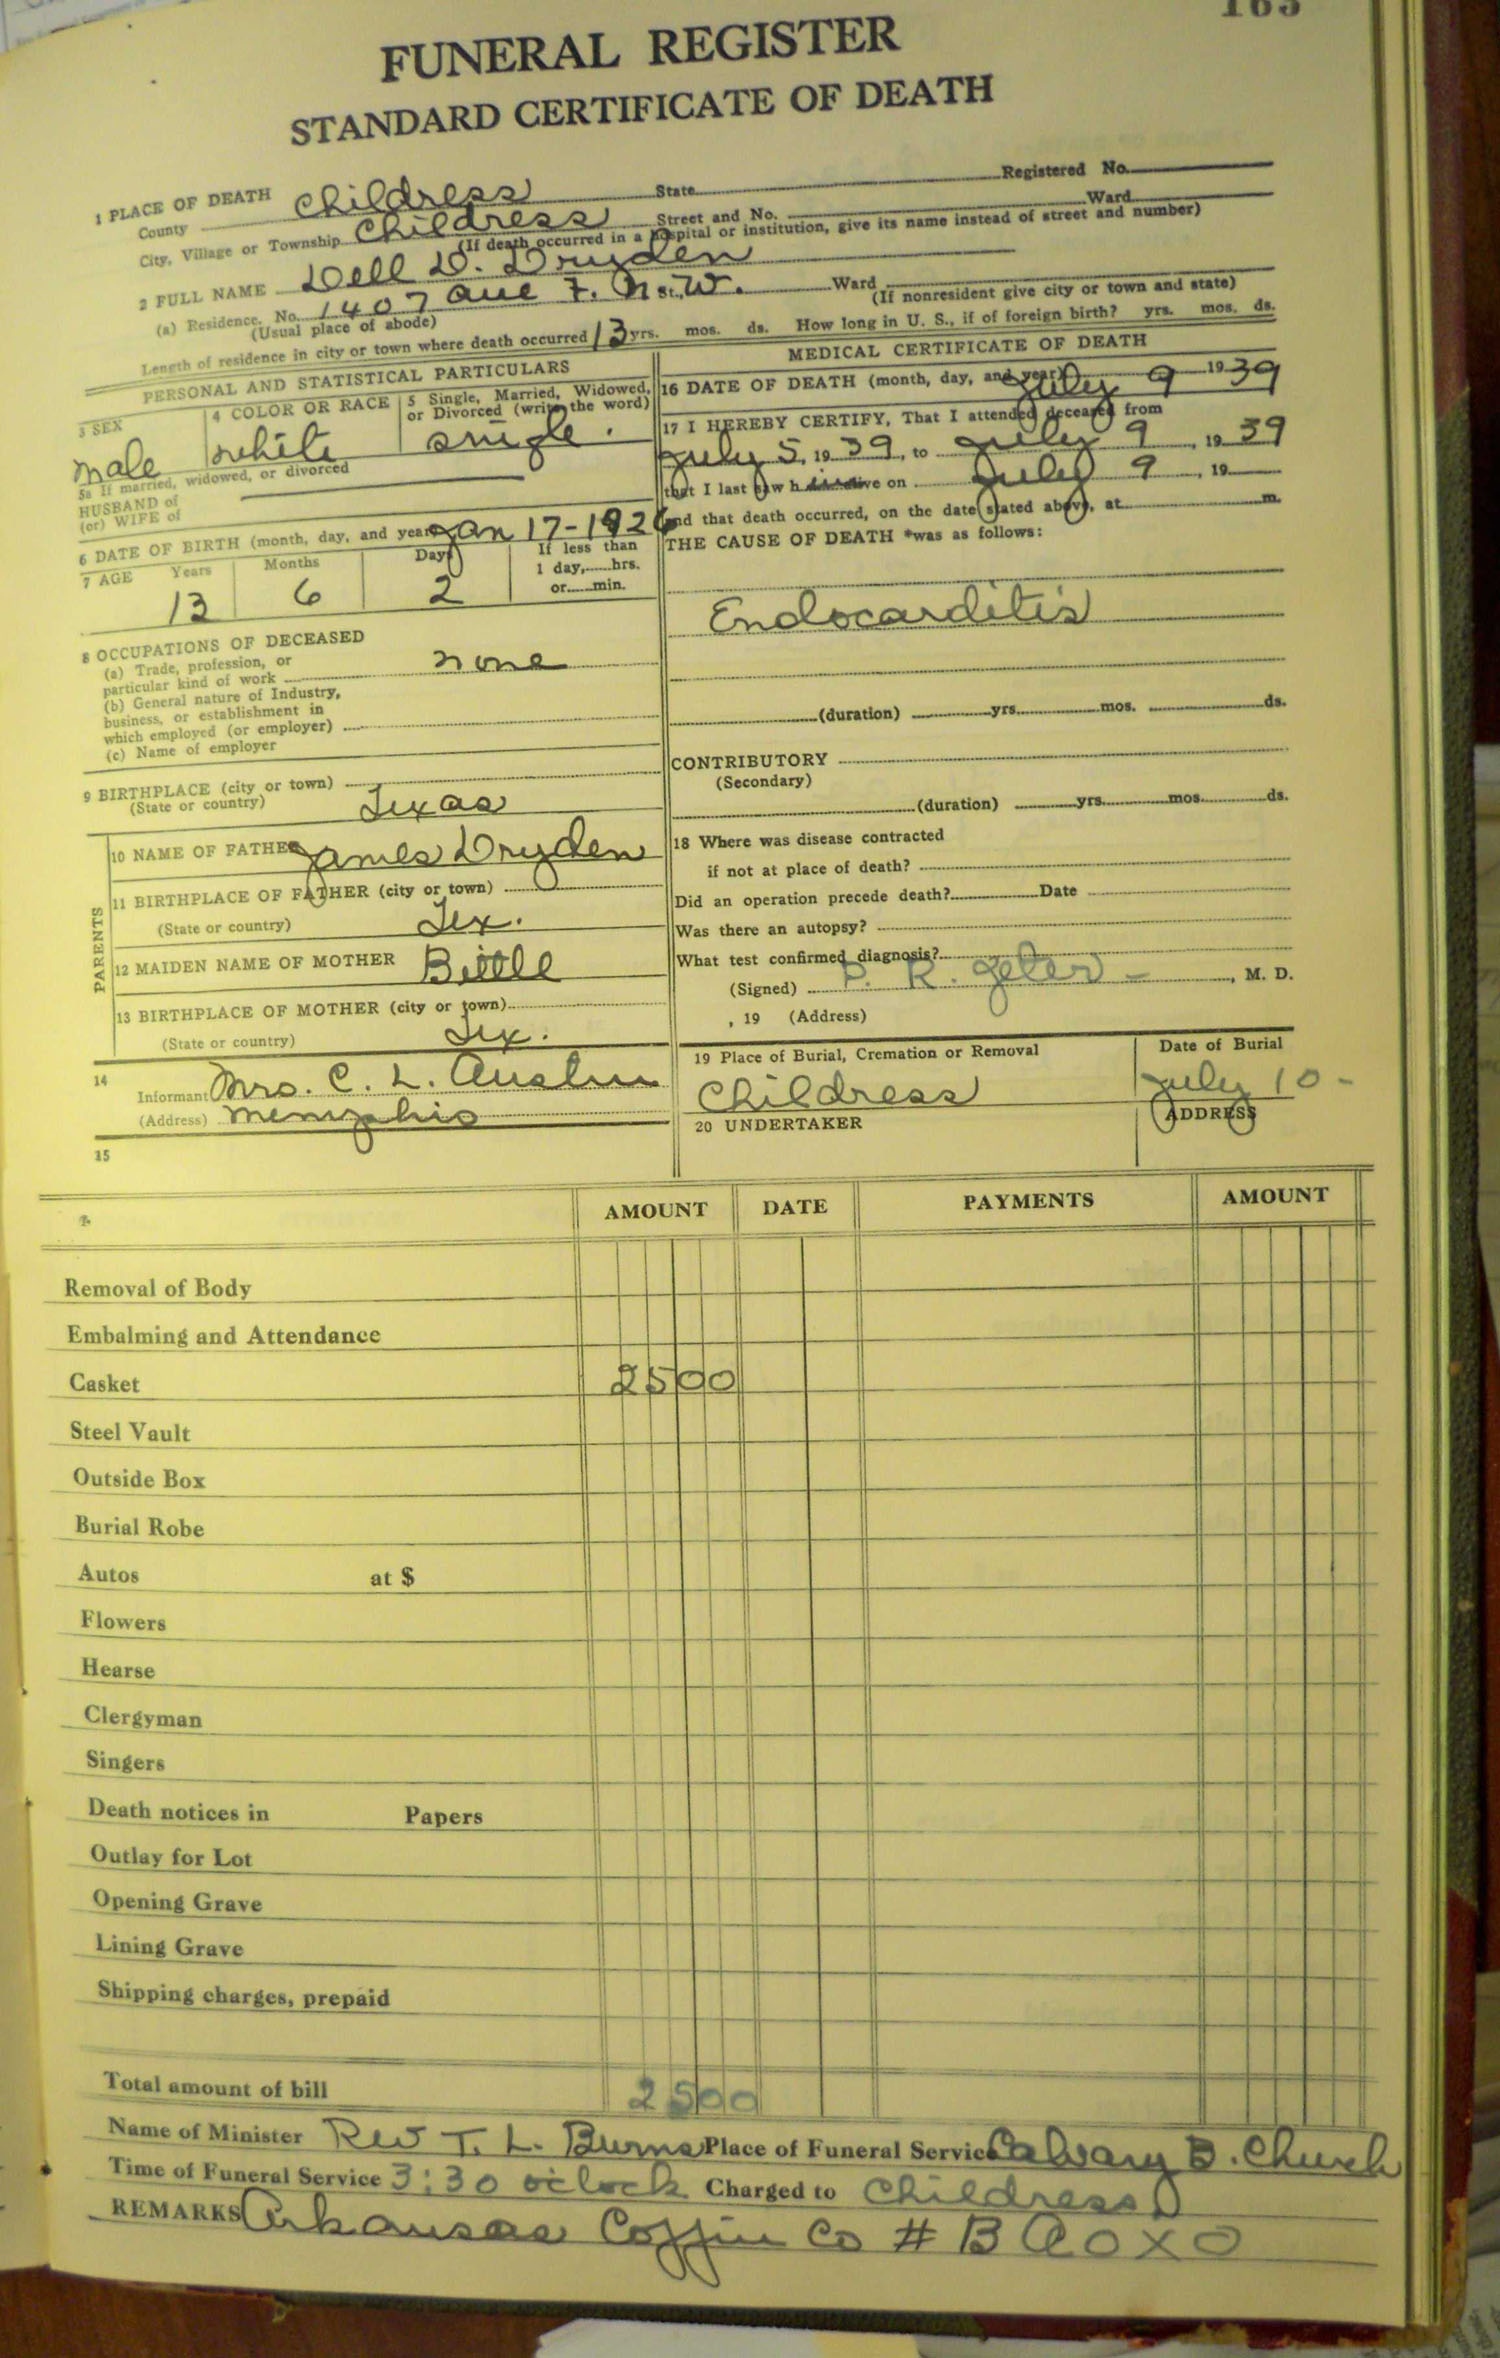 163
FUNERAL REGISTER
STANDARD CERTIFICATE OF DEATH
1 PLACE OF DEATH
County Childress State Registered No.
City, Village or Township Childress Street and No. Ward
(If death occurred in a hospital or institution, give its name instead of street and number)
2 FULL NAME Dell D. Dryden
(a) Residence. No. 1407 Ave F. N. St., W. Ward
(Usual place of abode) (If nonresident give city or town and state)
Length of residence in city or town where death occurred 13 yrs. mos. ds. How long in U. S., if of foreign birth? yrs. mos. ds.
PERSONAL AND STATISTICAL PARTICULARS
3 SEX 4 COLOR OR RACE 5 Single, Married, Widowed, or Divorced (write the word)
male white single.
5a If married, widowed, or divorced
HUSBAND of
(or) WIFE of
6 DATE OF BIRTH (month, day, and year) Jan 17-1926
7 AGE Years Months Days If less than
1 day, hrs.
or min.
13 6 2
8 OCCUPATIONS OF DECEASED
(a) Trade, profession, or
particular kind of work none
(b) General nature of Industry,
business, or establishment in
which employed (or employer)
(c) Name of employer
9 BIRTHPLACE (city or town)
(State or country) Texas
PARENTS
10 NAME OF FATHER James Dryden
11 BIRTHPLACE OF FATHER (city or town)
(State or country) Tex.
12 MAIDEN NAME OF MOTHER Bittle
13 BIRTHPLACE OF MOTHER (city or town)
(State or country) Tex.
14
Informant Mrs. C. L. Austin
(Address) Memphis
15
MEDICAL CERTIFICATE OF DEATH
16 DATE OF DEATH (month, day, and year) July 9 1939
17 I HEREBY CERTIFY, That I attended deceased from
July 5, 1939, to July 9, 1939
that I last saw h alive on July 9, 19
and that death occurred, on the date stated above, at m.
THE CAUSE OF DEATH *was as follows:
Endocarditis
(duration) yrs. mos. ds.
CONTRIBUTORY
(Secondary)
(duration) yrs. mos. ds.
18 Where was disease contracted
if not at place of death?
Did an operation precede death? Date
Was there an autopsy?
What test confirmed diagnosis?
(Signed) P. R. Jeter - , M. D.
, 19 (Address)
19 Place of Burial, Cremation or Removal Date of Burial
Childress July 10 -
20 UNDERTAKER ADDRESS
AMOUNT DATE PAYMENTS AMOUNT
Removal of Body
Embalming and Attendance
Casket 25 00
Steel Vault
Outside Box
Burial Robe
Autos at $
Flowers
Hearse
Clergyman
Singers
Death notices in Papers
Outlay for Lot
Opening Grave
Lining Grave
Shipping charges, prepaid
Total amount of bill 25 00
Name of Minister Rev T. L. Burns Place of Funeral Service Calvary B. Church
Time of Funeral Service 3:30 o'clock Charged to Childress
REMARKS Arkansas Coffin Co # B